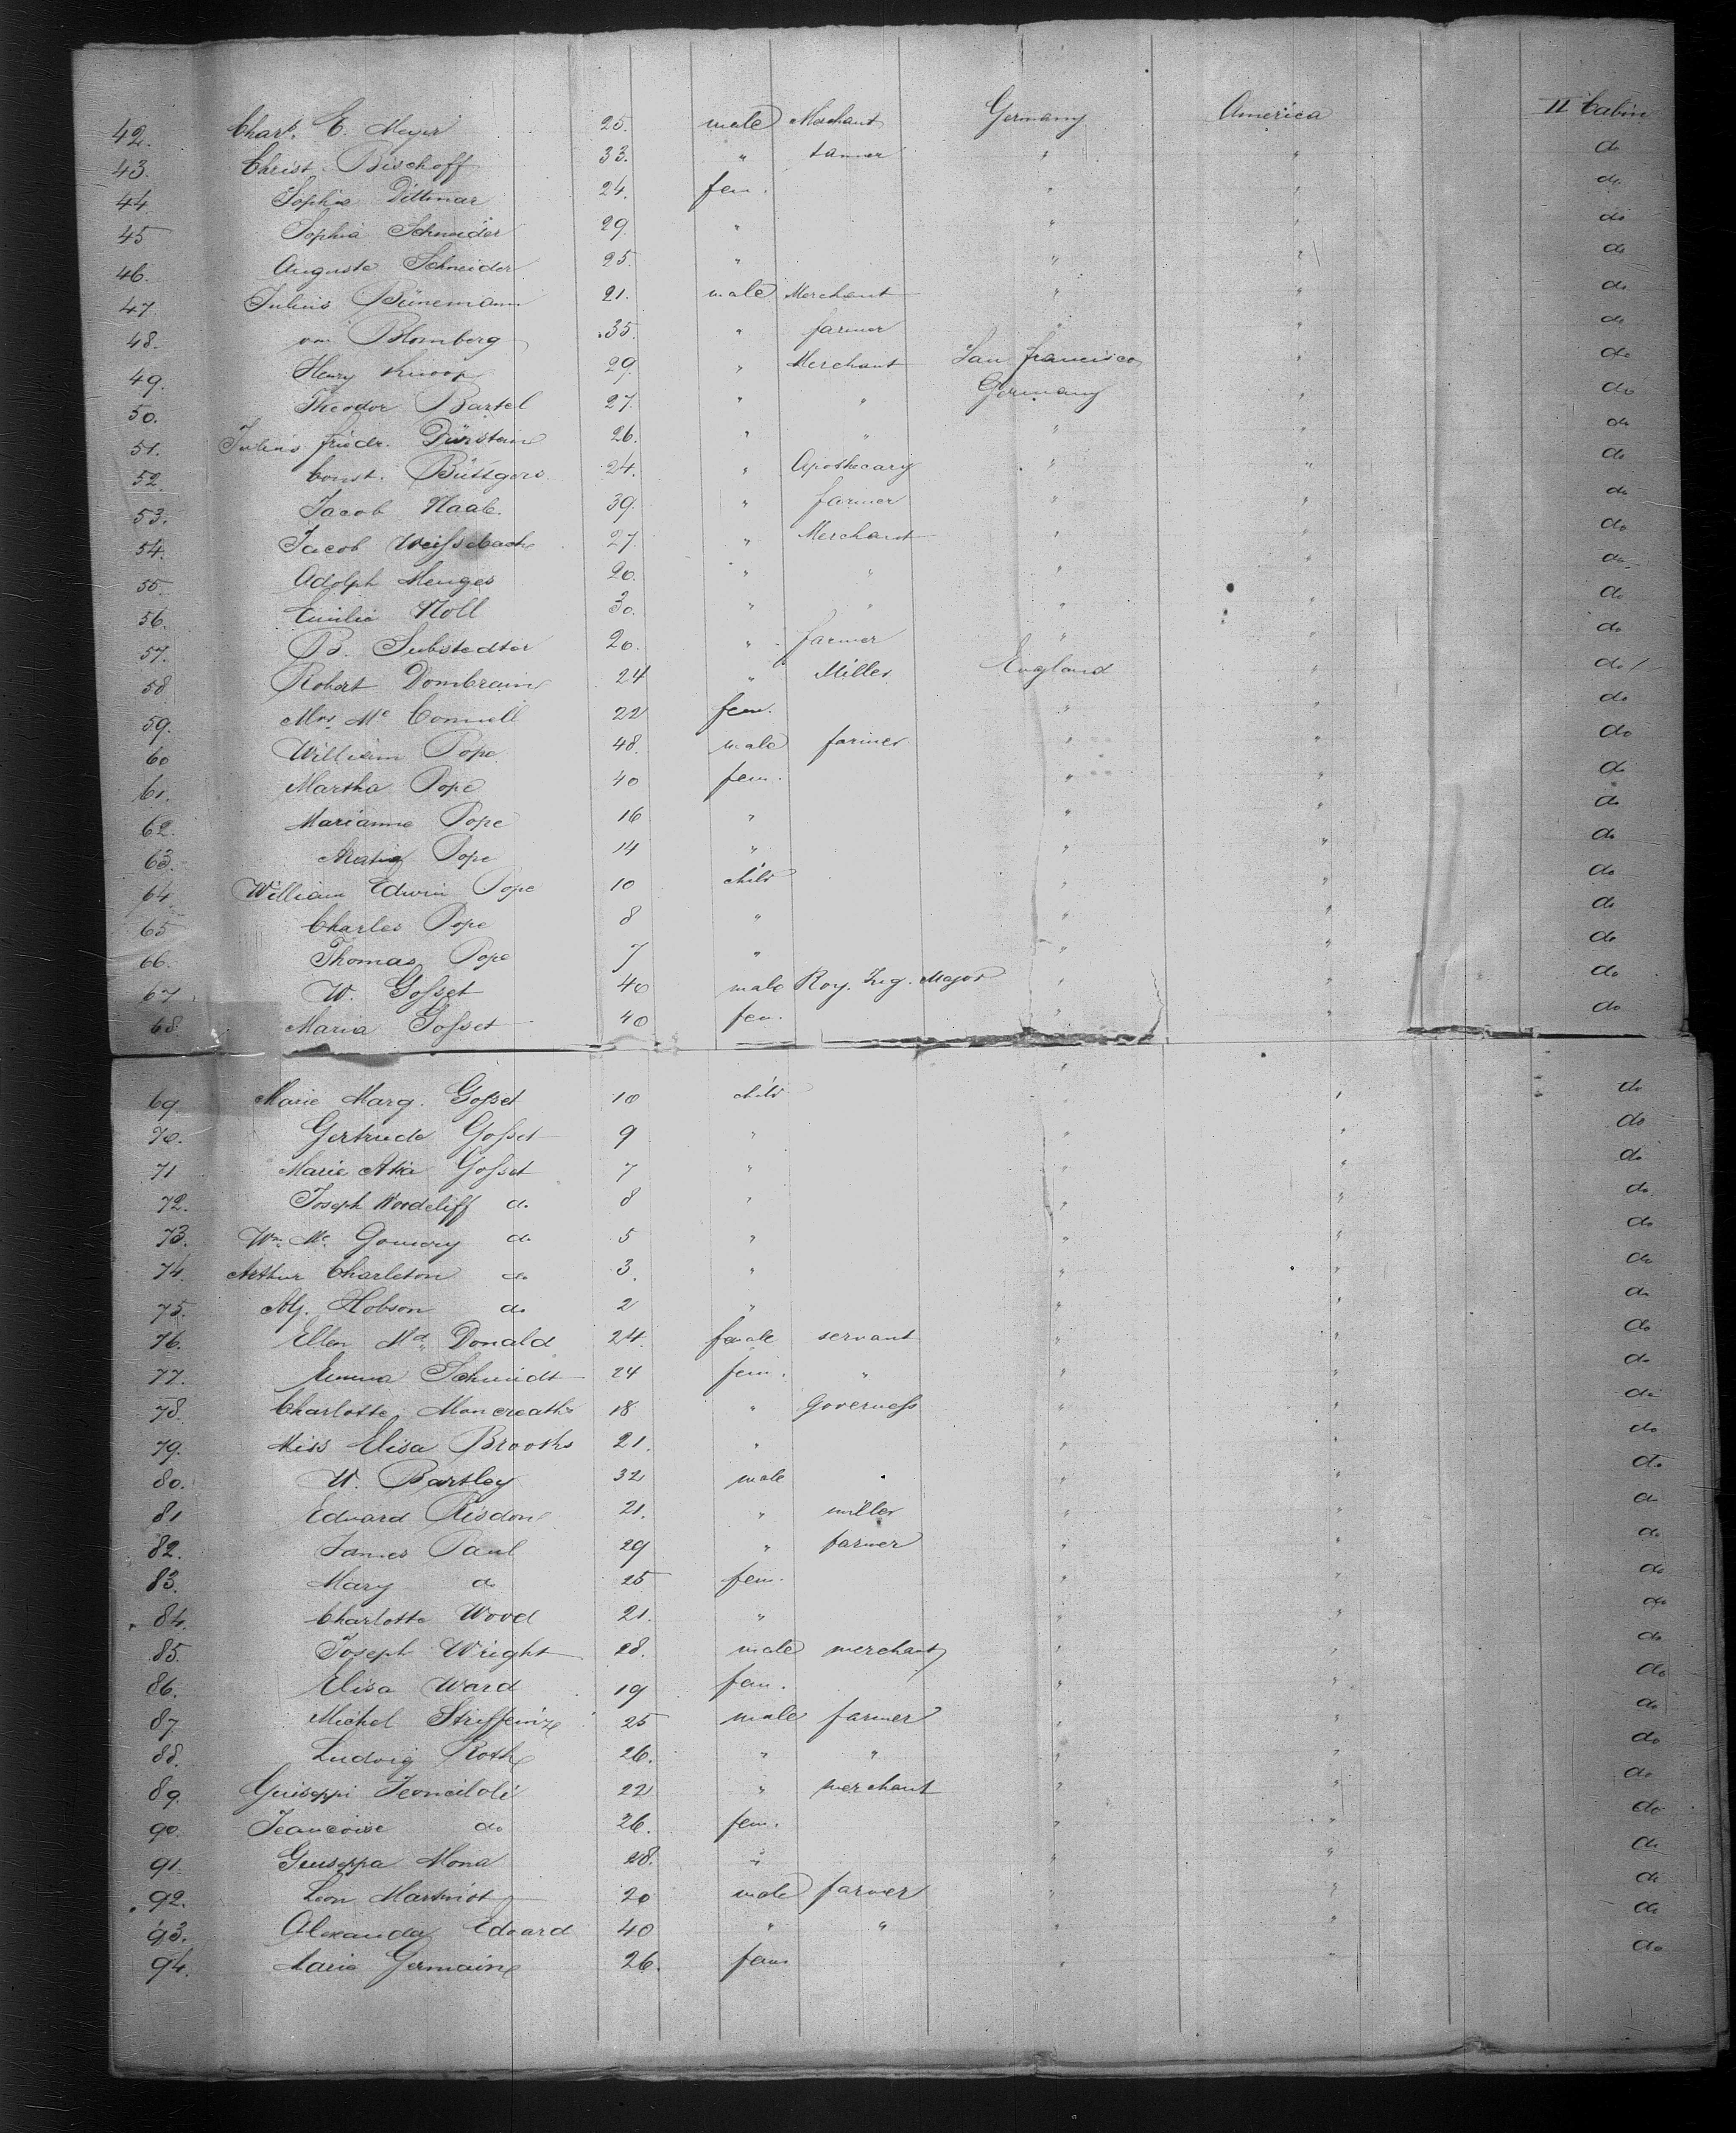 42. Charls. C. Meyer 25. male Merchant Germany America II Cabin
43. Christ. Bischoff 33. " tanner " " do
44. Sophie Dittmar 24. fem. " " do
45 Sophia Schneider 29. " " " do
46. Auguste Schneider 25. " " " do
47. Julius Bünemann 21. male Merchant " " do
48. von Blomberg 35. " farmer " " do
49. Henry Knoop 29 " Merchant San Francisco " do
50. Theodor Bartel 27. " " Germany " do
51. Julius Friedr. Dürstein 26. " " " " do
52. Const. Büttgers 24. " Apothecary " " do
53. Jacob Naab 39. " farmer " " do
54. Jacob Weissbach 27. " Merchant " " do
55. Adolph Menges 20. " " " " do
56. Emilie Noll 30. " " " " do
57. B. Substedter 20. " farmer " " do
58 Robert Dombrain 24 " Miller England " do
59. Mrs. Mc Connell 22 fem. " " do
60 William Pope 48. male farmer " " do
61. Martha Pope 40 fem. " " do
62. Marianne Pope 16 " " " do
63. Pope 14 " " " do
64. William Edwin Pope 10 child " " do
65 Charles Pope 8 " " " do
66. Thomas Pope 7 " " " do
67. W. Gosset 40 male Roy. Ing. Major " " do
68. Maria Gosset 40 fem. " " do
69. Marie Marg. Gosset 10 child " " do
70. Gertrude Gosset 9 " " " do
71 Marie Gosset 7 " " " do
72. Joseph Wordcliff do 8 " " " do
73. Wm. Mc. Gomery do 5 " " " do
74. Arthur Charleton do 3. " " " do
75. Hobson do 2 " " " do
76. Ellen Md. Donald 24. female servant " " do
77. Emma Schmidt 24 fem. " " " do
78. Charlotte Moncreath 18 " Governess " " do
79. Miss Elisa Brooks 21. " " " do
80. W. Bartley 32 male " " do
81 Edward Risdon 21. " miller " " do
82. James Paul 29 " farmer " " do
83. Mary do 25 fem. " " do
84. Charlotte Wood 21. " " " do
85. Joseph Wright 28. male merchant " " do
86. Elisa Ward 19 fem. " " do
87. Michel 25 male farmer " " do
88. Ludwig Roth 26. " " " " do
89. Guiseppi 22 " merchant " " do
90. do 26. fem. " " do
91. Guiseppa Mona 28. " " " do
92. Leon 20 male farmer " " do
93. Alexander Edward 40 " " " " do
94. Maria Germaine 26. fem " " do